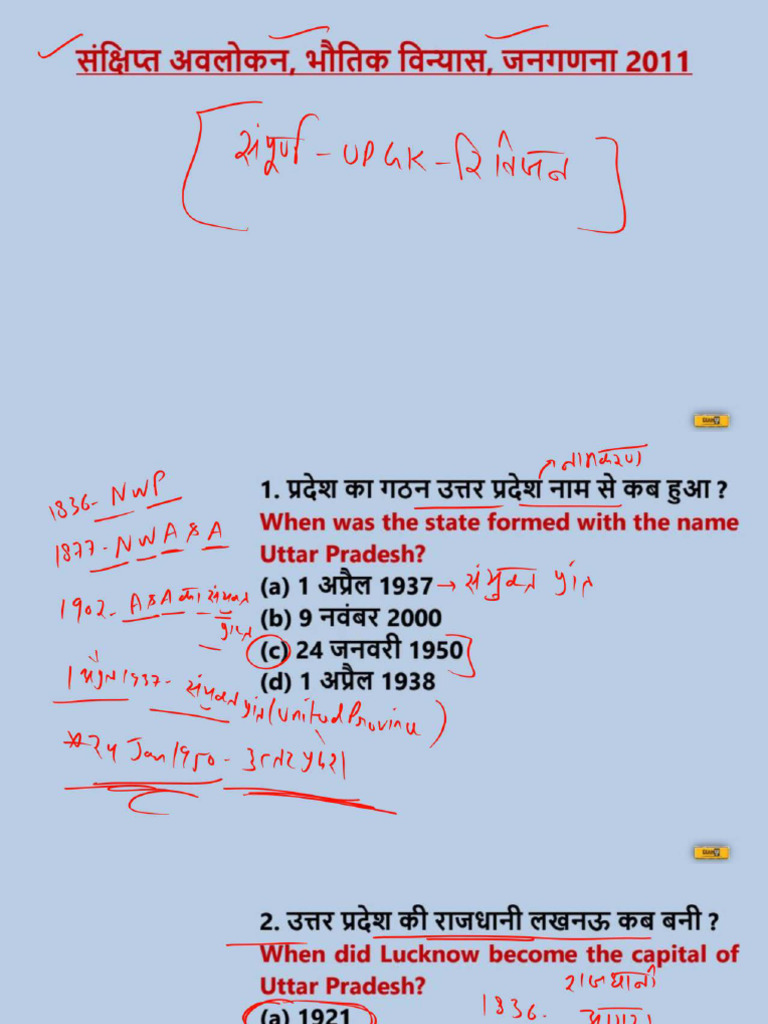 संक्षिप्त अवलोकन, भौतिक विन्यास, जनगणना 2011
संपूर्ण - UPGK - रिविजन
नामकरण
1. प्रदेश का गठन उत्तर प्रदेश नाम से कब हुआ ?
When was the state formed with the name
Uttar Pradesh?
(a) 1 अप्रैल 1937 → संयुक्त प्रांत
(b) 9 नवंबर 2000
(c) 24 जनवरी 1950
(d) 1 अप्रैल 1938
1836- NWP
1877- NWA & A
1902- A&A का संयुक्त
प्रान्त
1 अप्रैल 1937- संयुक्त प्रांत (United Province)
*24 Jan 1950 - उत्तर प्रदेश
2. उत्तर प्रदेश की राजधानी लखनऊ कब बनी ?
When did Lucknow become the capital of
Uttar Pradesh?
राजधानी
(a) 1921
1836-
आगरा